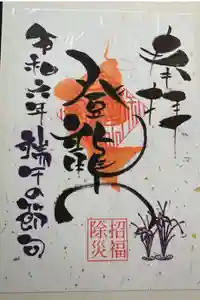 奉拝
登龍門
令和六年 端午の節句
招福
除災